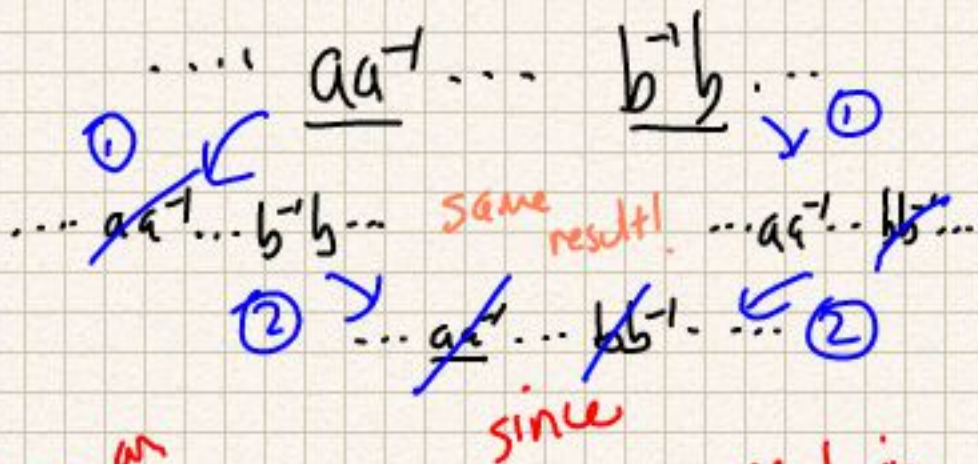 .... aa⁻¹ ... b⁻¹b ...
① ①
.... aa⁻¹ ... b⁻¹b ... same result! ... aa⁻¹ .. bb⁻¹ ...
② ... aa⁻¹ ... bb⁻¹ . .... ②
an since